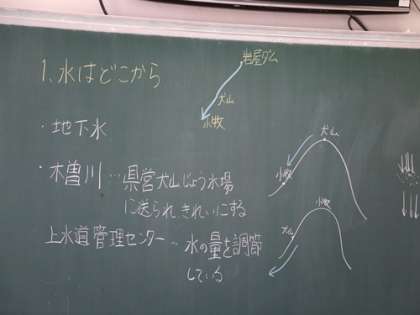 1. 水はどこから
・地下水
・木曽川…県営犬山じょう水場
に送られきれいにする
上水道管理センター…水の量を調節
している
岩屋ダム
犬山
小牧
犬山
小牧
小牧
犬山